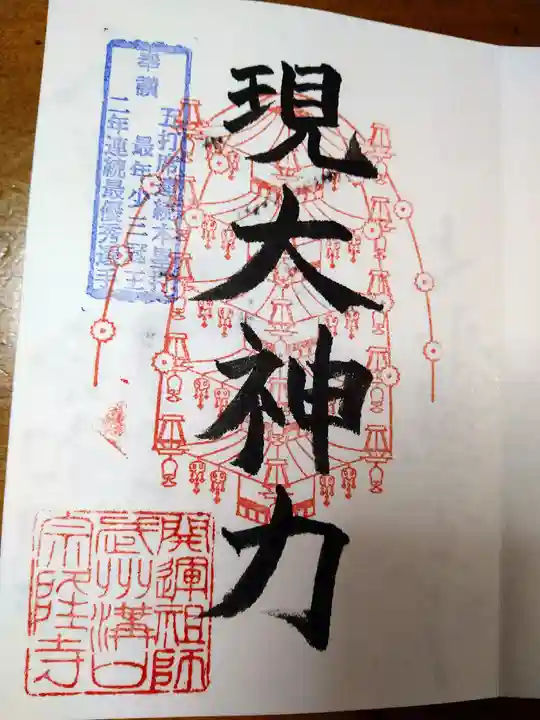 現大神力
奉讃
五打席連続本塁打
最年少三冠王
二年連続最優秀選手
開運祖師
武州溝口
宗隆寺